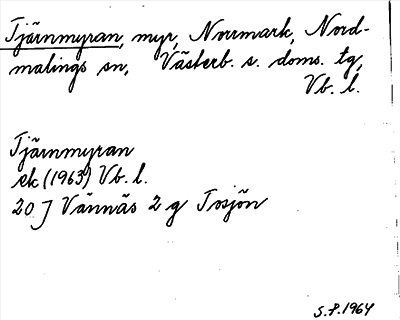 Tjärnmyran, myr, Norrmark, Nord-
malings sn, Västerb. s. doms. tg,
Vb. l.
Tjärnmyran
ek (1963) Vb. l.
20 J Vännäs 2 g Tosjön
S.P. 1964